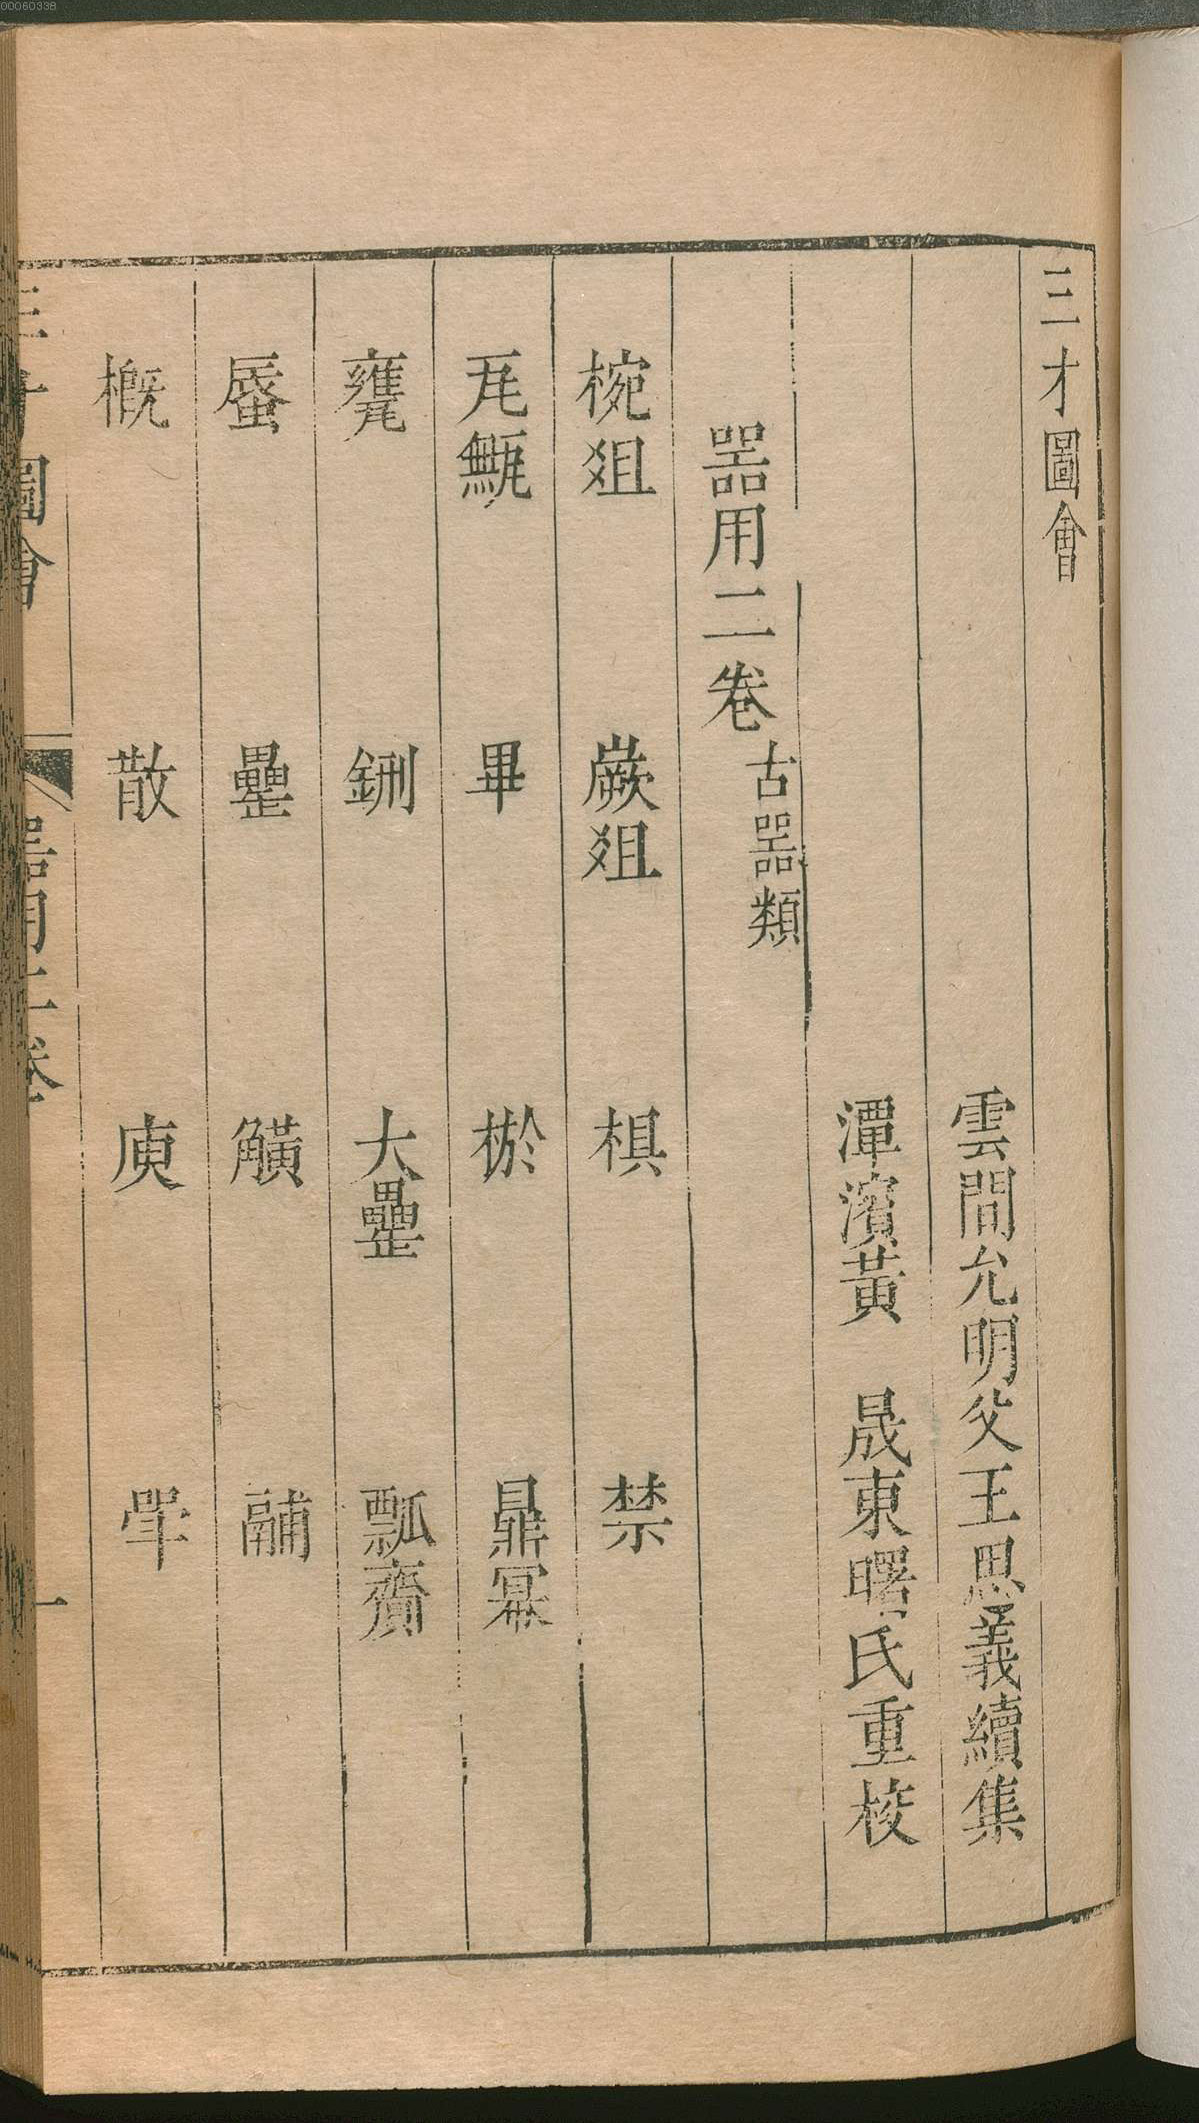 00060338
三才圖會
雲間允明父王思義續集
潭濱黃　晟東曙氏重校
器用二卷 古器類
梡俎　嶡俎　椇　禁
瓦甒　畢　棜　鼎冪
甕　鉶　大罍　瓢齎
蜃　罍　觵　鬴
概　散　庾　斝
三才圖會 器用二卷 一